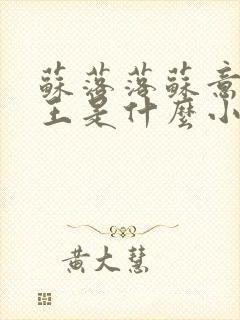 蘇落落蘇意
王是什麼小
黃大慧